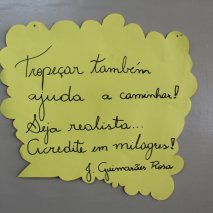 Tropeçar também
ajuda a caminhar!
Seja realista...
Acredite em milagres!
J. Guimarães Rosa